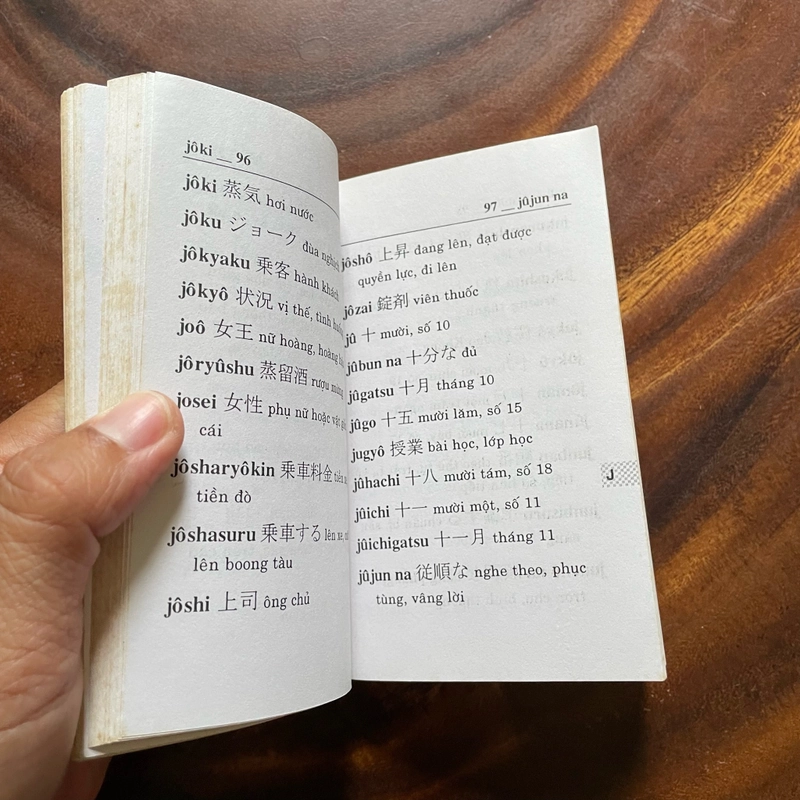 jôki __ 96
jôki 蒸気 hơi nước
jôku ジョーク đùa
jôkyaku 乗客 hành khách
jôkyô 状況 vị thế, tình
joô 女王 nữ hoàng, hoàng
jôryûshu 蒸留酒 rượu
josei 女性 phụ nữ hoặc vật
cái
jôsharyôkin 乗車料金 tiền
tiền đò
jôshasuru 乗車する lên xe,
lên boong tàu
jôshi 上司 ông chủ
97 __ jûjun na
jôshô 上昇 đang lên, đạt được
quyền lực, đi lên
jôzai 錠剤 viên thuốc
jû 十 mười, số 10
jûbun na 十分な đủ
jûgatsu 十月 tháng 10
jûgo 十五 mười lăm, số 15
jugyô 授業 bài học, lớp học
jûhachi 十八 mười tám, số 18
jûichi 十一 mười một, số 11
jûichigatsu 十一月 tháng 11
jûjun na 従順な nghe theo, phục
tùng, vâng lời
J